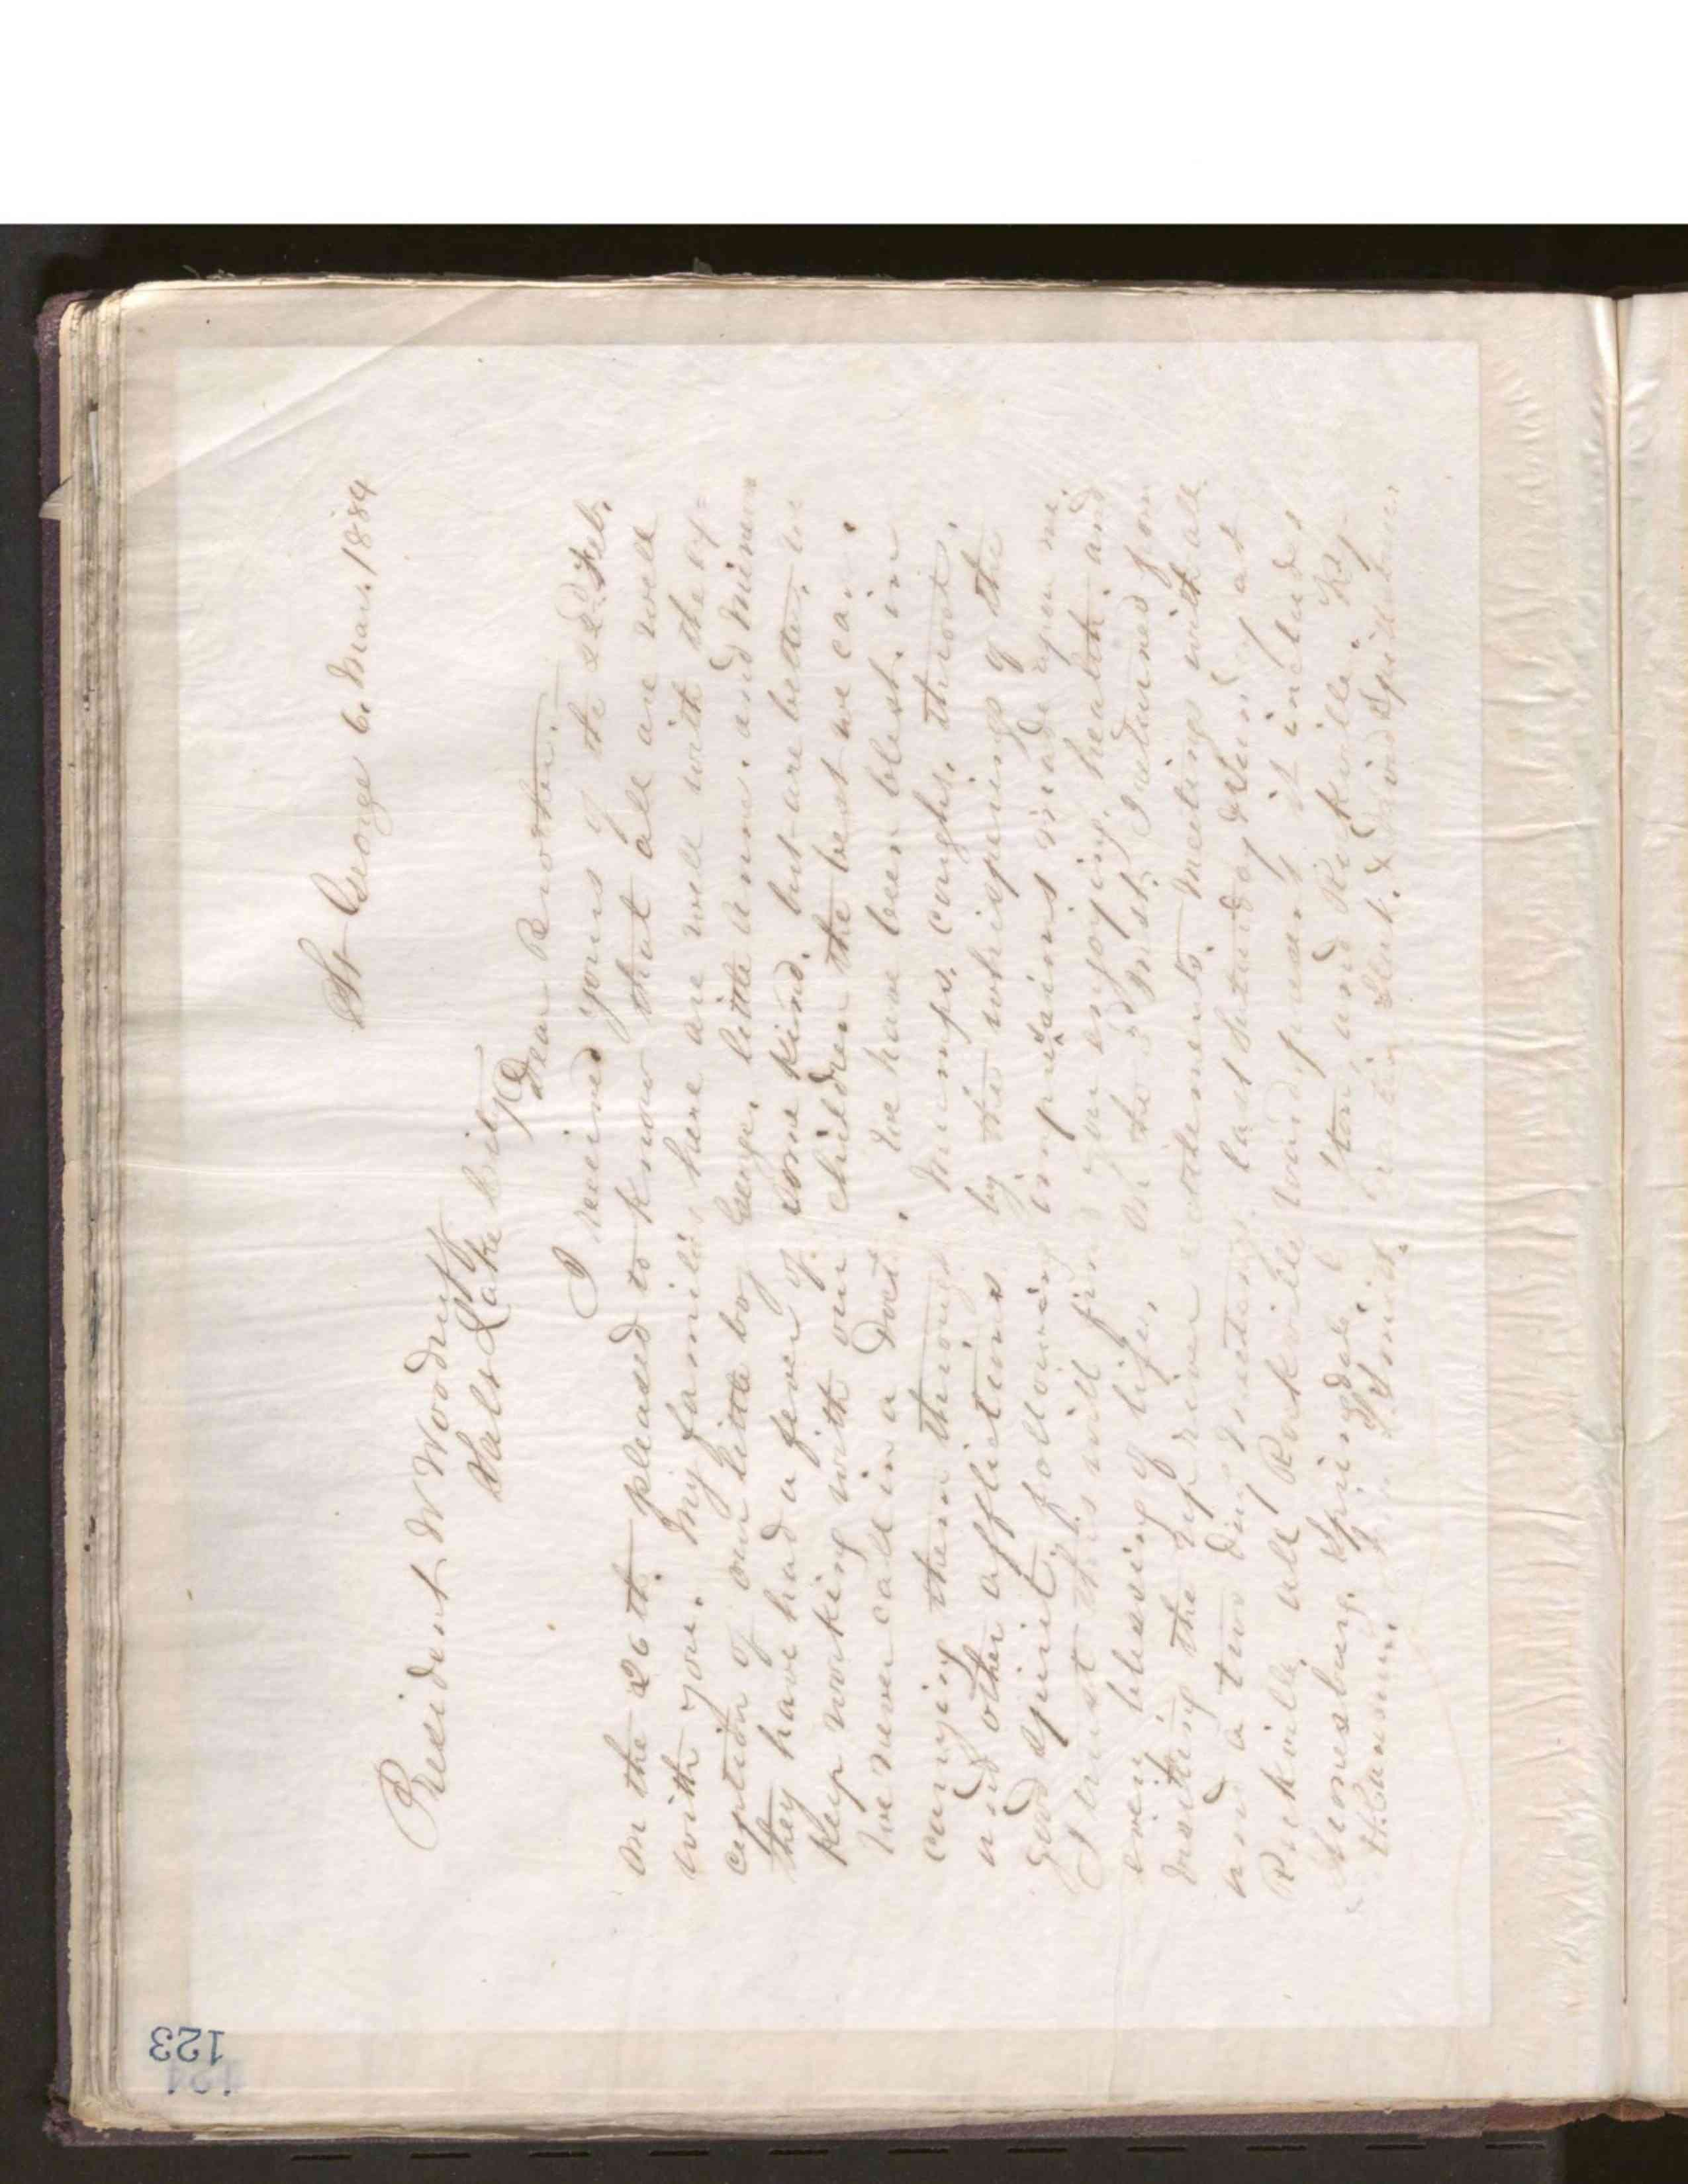 123
St George 6. Mar. 1884
President W Woodruff
Salt Lake City
Dear Brother:
I received yours of the 22d Feb.
on the 26th. pleased to know that all are well
with you. My families here are well with the ex=
ception of our little boy George, little Anna. and Minerva
they have had a fever of some kind. but are better, we
keep working with our children the best we can.
We never call in a Doct. We have been blest, in
carrying them through Mumps, coughs, throat,
and other afflictions by the whisperings of the
good spirit. following impressions made upon me
I trust this will find you enjoying, health, and
every blessing of life, On the 3d Inst. I returned from
visiting the up river settlements. Meetings with all
and a two days meeting, last Saturday & Sunday at
Rockville, all Rockville ward, it includes
Shonesburg, Springdale, and Rockville.